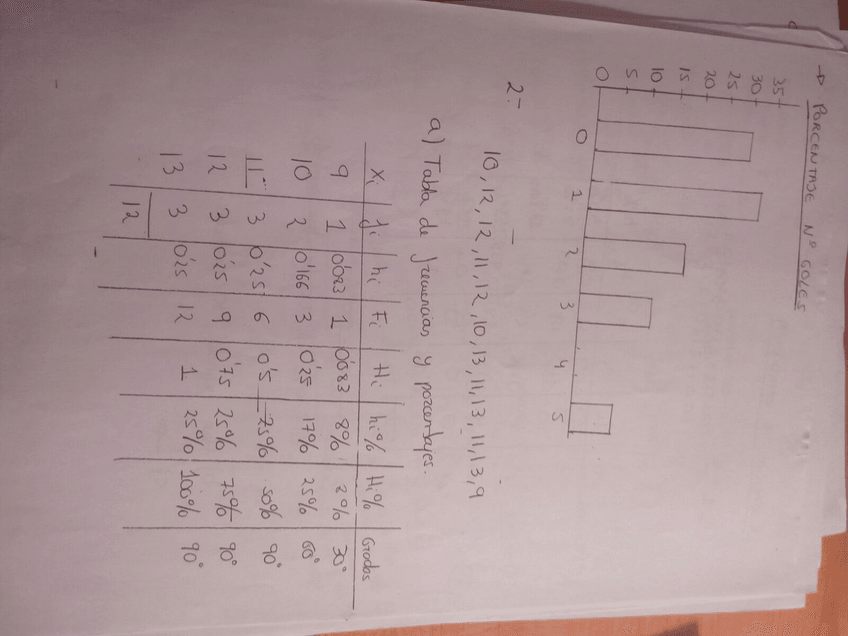 → PORCENTAJE Nº GOLES
35
30
25
20
15
10
5
0
0 1 2 3 4 5
2.-
10, 12, 12, 11, 12, 10, 13, 11, 13, 11, 13, 9
a) Tabla de frecuencias y porcentajes.
Xi fi hi Fi Hi hi% Hi% Grados
9 1 0'083 1 0'083 8% 8% 30°
10 2 0'166 3 0'25 17% 25% 60°
11 3 0'25 6 0'5 25% 50% 90°
12 3 0'25 9 0'75 25% 75% 90°
13 3 0'25 12 1 25% 100% 90°
12